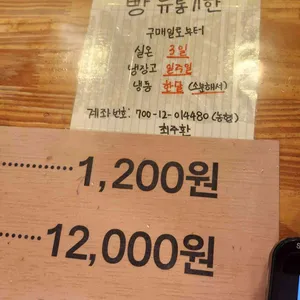 빵 유통기한
구매일로부터
실온 3일
냉장고 일주일
냉동 한달 (소분해서)
계좌번호: 700-12-014480 (농협)
최주환
............1,200원
......12,000원